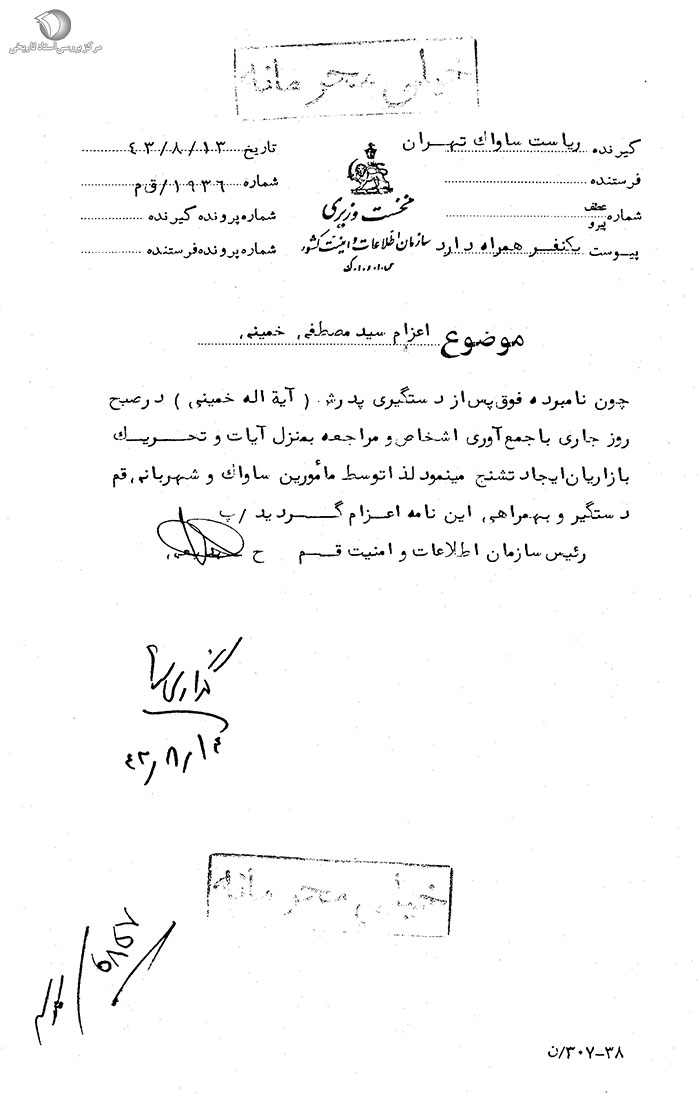 مرکز بررسی اسناد تاریخی
خیلی محرمانه
گیرنده ریاست ساواک تهران
فرستنده
شماره عطف پیرو
پیوست یکنفر همراه دارد
نخست وزیری
سازمان اطلاعات و امنیت کشور
س.ا.و.ا.ک
تاریخ ۴۳/۸/۱۳
شماره ۱۹۳۶/ق م
شماره پرونده گیرنده
شماره پرونده فرستنده
موضوع اعزام سید مصطفی خمینی
چون نامبرده فوق پس از دستگیری پدرش (آیة اله خمینی) در صبح
روز جاری با جمع آوری اشخاص و مراجعه به منزل آیات و تحریک
بازاریان ایجاد تشنج مینمود لذا توسط مأمورین ساواک و شهربانی قم
دستگیر و به همراهی این نامه اعزام گردید /پ
رئیس سازمان اطلاعات و امنیت قم ح
۴۳/۸/۱۴
خیلی محرمانه
۳۰۷-۳۸/ن